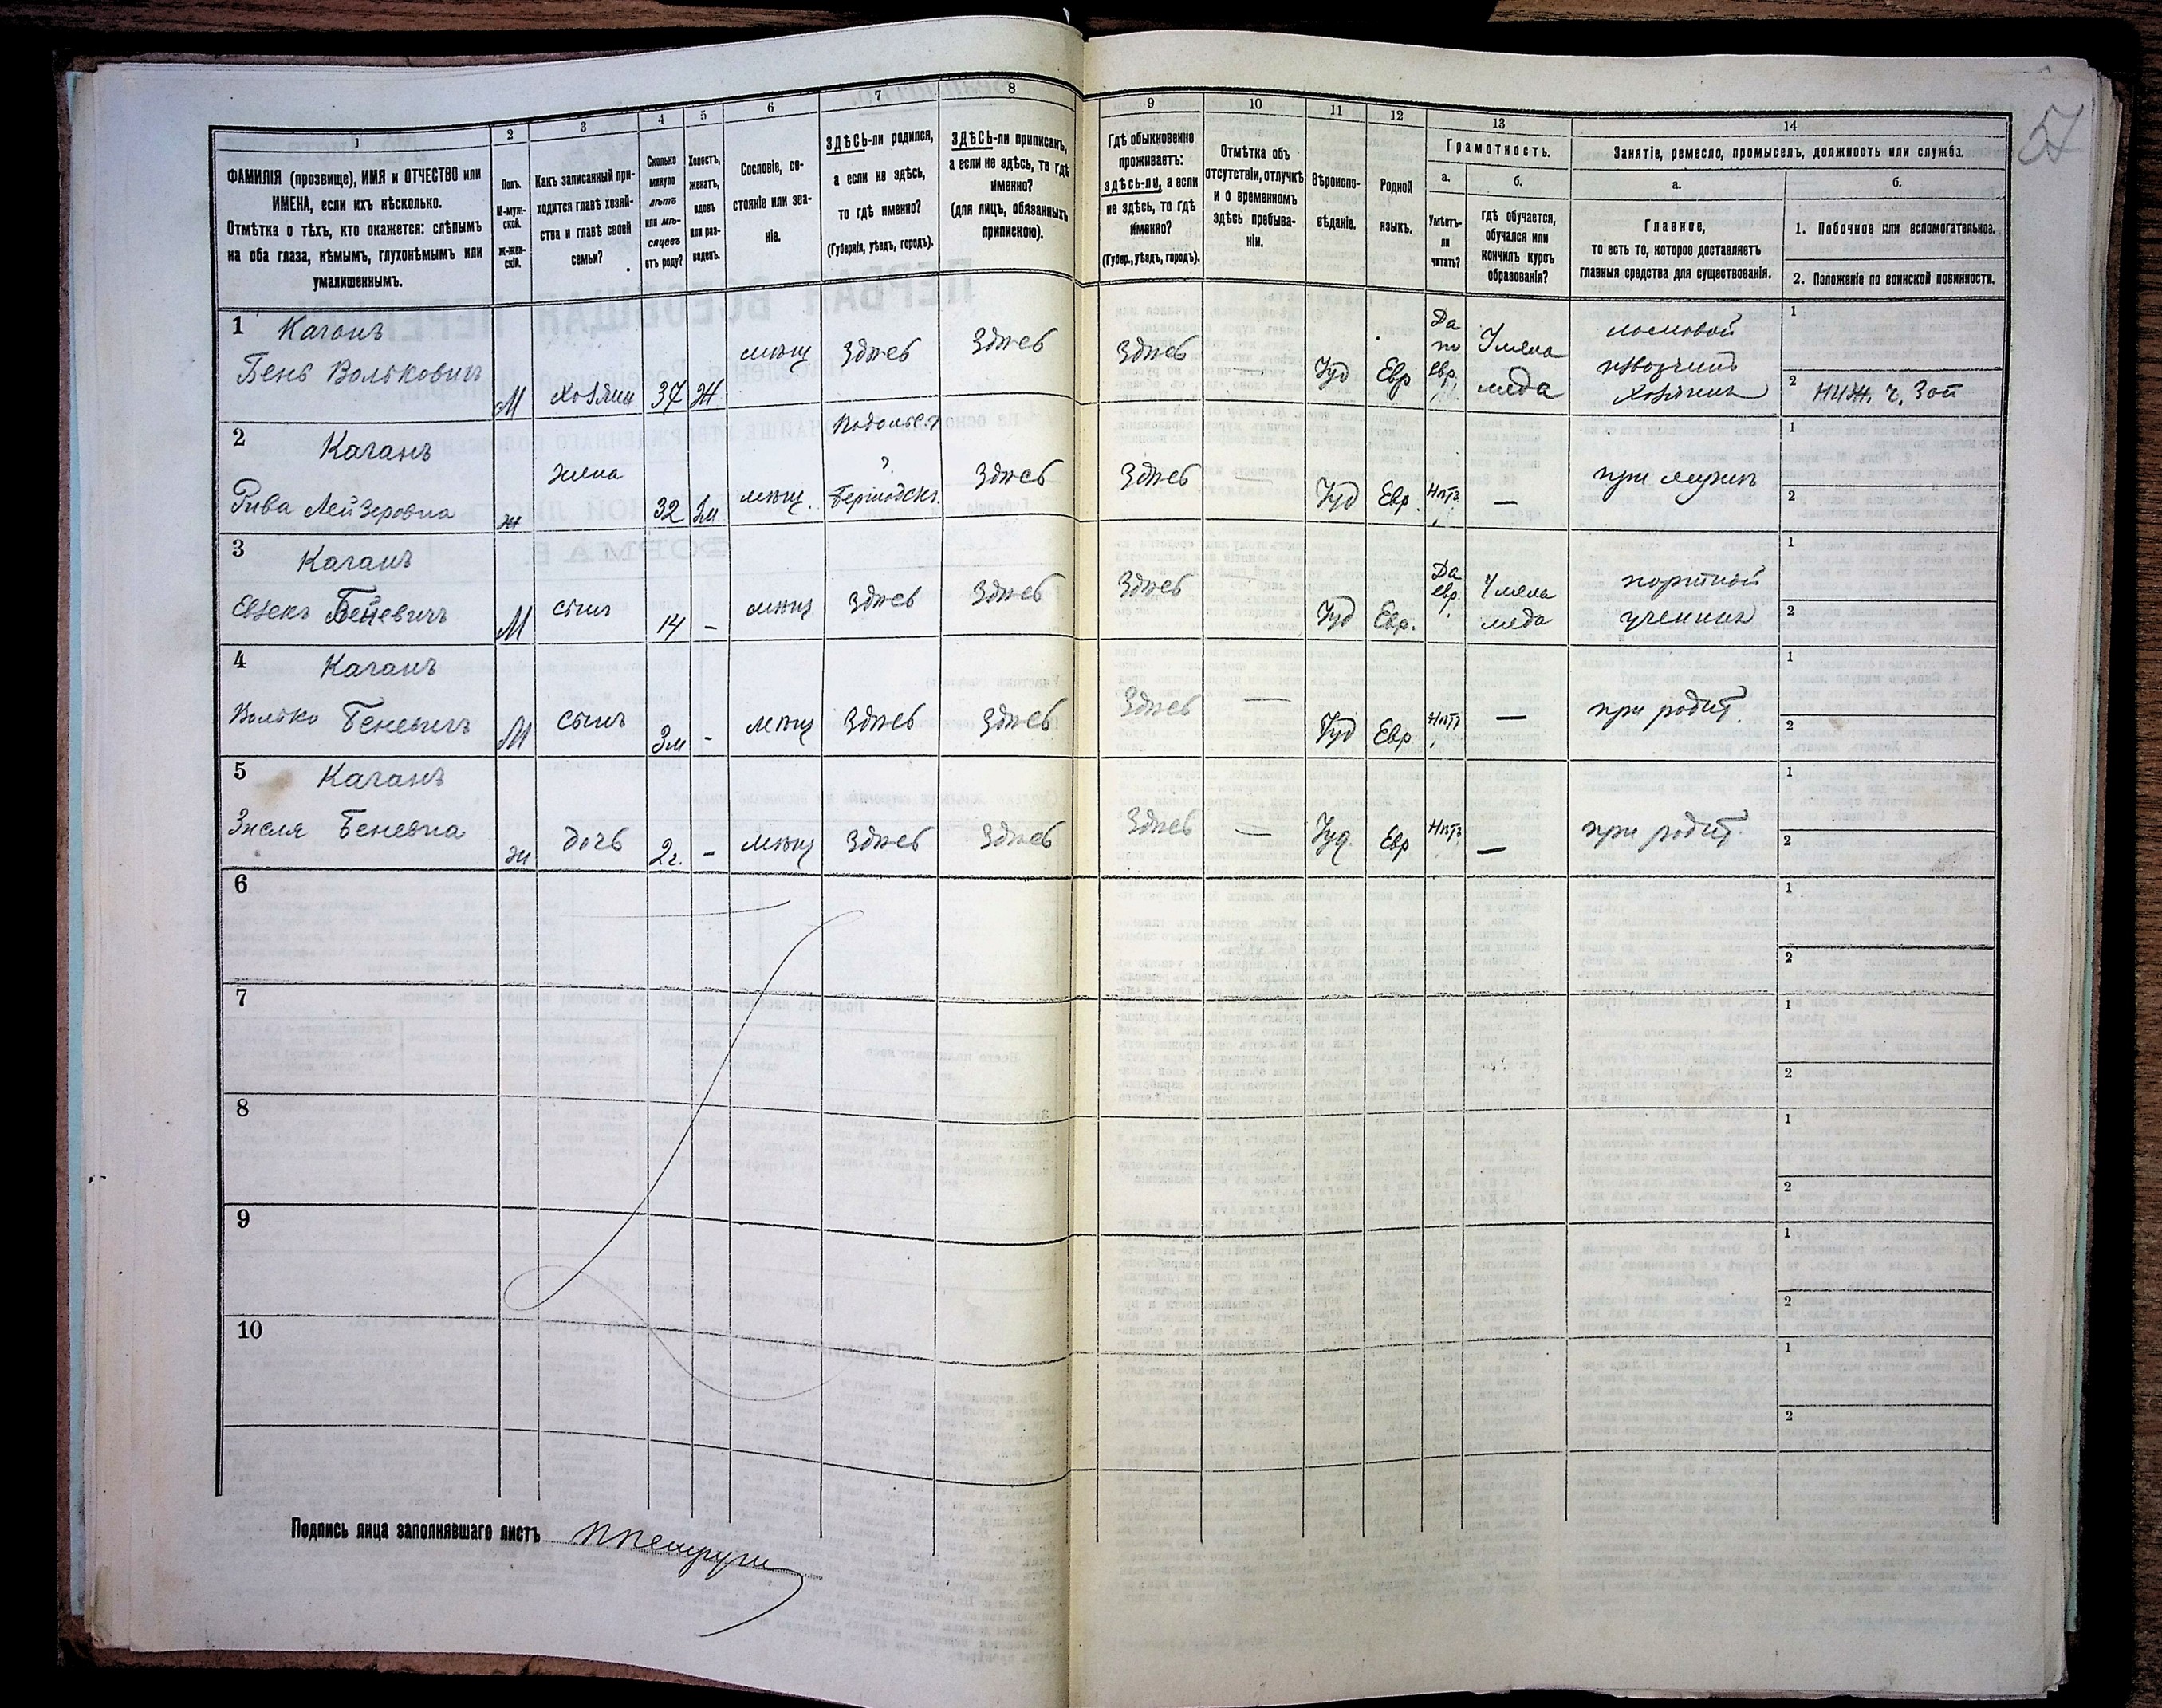 57
1
2
3
4
5
6
7
8
9
10
11
12
13
14
ФАМИЛІЯ (прозвище), ИМЯ и ОТЧЕСТВО или
ИМЕНА, если ихъ нѣсколько.
Отмѣтка о тѣхъ, кто окажется: слѣпымъ
на оба глаза, нѣмымъ, глухонѣмымъ или
умалишеннымъ.
Полъ.
М-муж-
ской.
ж-жен-
скій.
Какъ записанный при-
ходится главѣ хозяй-
ства и главѣ своей
семьи?
Сколько
минуло
лѣтъ
или мѣ-
сяцевъ
отъ роду?
Холостъ,
женатъ,
вдовъ
или раз-
веденъ.
Сословіе, со-
стояніе или зва-
ніе.
ЗДѢСЬ-ли родился,
а если не здѣсь,
то гдѣ именно?
(Губернія, уѣздъ, городъ).
ЗДѢСЬ-ли приписанъ,
а если не здѣсь, то гдѣ
именно?
(для лицъ, обязанныхъ
припискою).
Гдѣ обыкновенно
проживаетъ:
здѣсь-ли, а если
не здѣсь, то гдѣ
именно?
(Губер., уѣздъ, городъ).
Отмѣтка объ
отсутствіи, отлучкѣ
и о временномъ
здѣсь пребыва-
ніи.
Вѣроиспо-
вѣданіе.
Родной
языкъ.
Грамотность.
а.
Умѣетъ-
ли
читать?
б.
гдѣ обучается,
обучался или
кончилъ курсъ
образованія?
Занятіе, ремесло, промыселъ, должность или служба.
а.
Главное,
то есть то, которое доставляетъ
главныя средства для существованія.
б.
1. Побочное или вспомогательное.
2. Положеніе по воинской повинности.
1 Каганъ
Бень Вольковичъ
М
хозяин
37
Ж
мѣщ
Здѣсь
Здѣсь
Здѣсь
—
Іуд
Евр
Да
по
евр.
У мела
меда
ломовой
извозчикъ
хозяинъ
1
2 НИЖ. ч. Зап
2
Каганъ
Рива Лейзеровна
ж
жена
32
Зм.
мѣщ.
Подольск
г.
Здѣсь
Здѣсь
—
Іуд
Евр.
Нѣтъ
—
при мужѣ
1
2
3
Каганъ
Бейневичъ
М
сынъ
14
–
мѣщ
Здѣсь
Здѣсь
Здѣсь
—
Іуд
Евр.
Да
евр.
У мела
меда
портной
ученикъ
1
2
4
Каганъ
Волько Беневичъ
М
сынъ
3м
–
мѣщ
Здѣсь
Здѣсь
Здѣсь
—
Іуд
Евр
Нѣтъ
—
при родит.
1
2
5
Каганъ
Зисля Беневна
ж
дочь
2г.
–
мѣщ
Здѣсь
Здѣсь
Здѣсь
—
Іуд
Евр
Нѣтъ
—
при родит.
1
2
6
1
2
7
1
2
8
1
2
9
1
2
10
1
2
Подпись лица заполнявшаго листъ